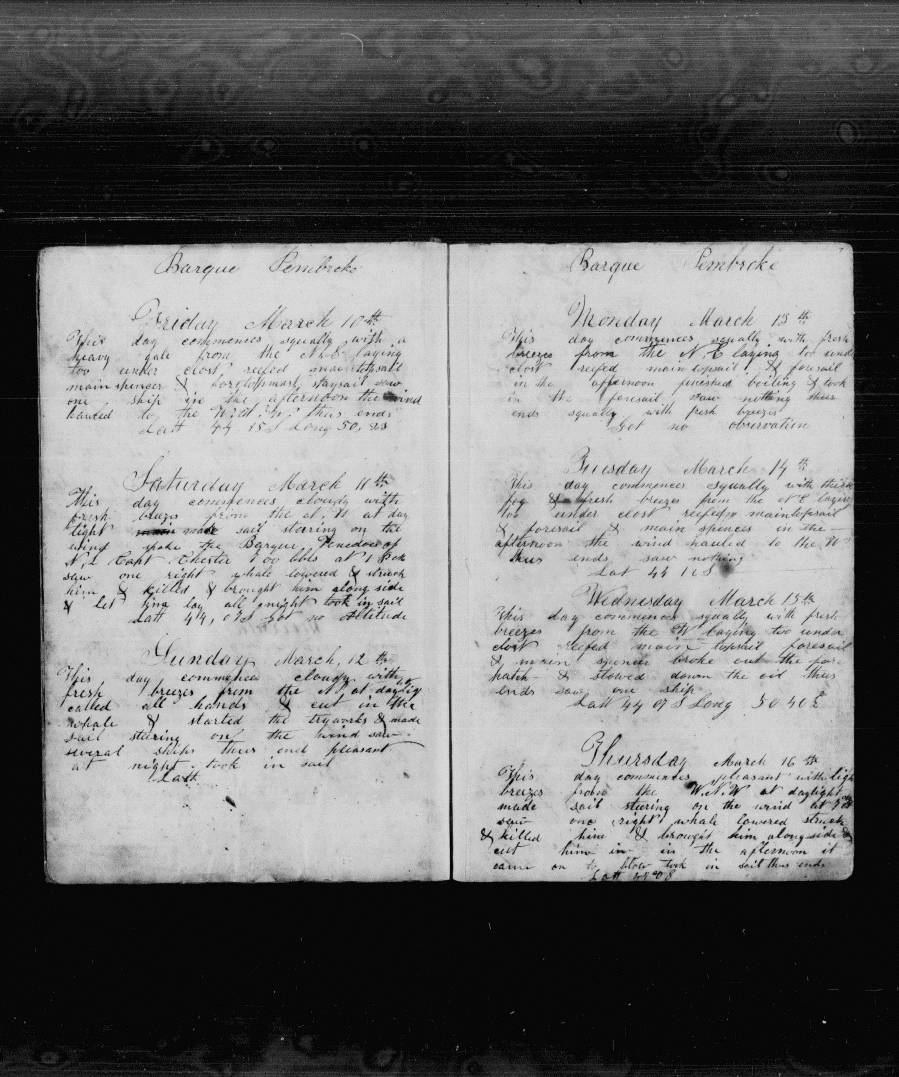 Barque Pembroke
Friday March 10th
This day commences squally with a
heavy gale from the N.E laying
too under clost reefed maintopsail
main spencer & foretopmast staysail saw
one ship in the afternoon the wind
hauled to the thus ends
Latt 44 15 S Long 50,
Saturday March 11th
This day commences cloudy with
fresh breezes from the N. at day
light made sail steering on the
wind spoke the Barque of
N,L Capt Chester bbls at
saw one right whale lowered & struck
him & killed & brought him along side
& let him lay all night took in sail
Latt 44, 07 S got no Altitude
Sunday March, 12th
This day commences cloudy with
fresh breezes from the N, at daylig
called all hands & cut in the
whale & started the tryworks & made
sail stearing on the wind saw
several ships thus ends pleasant
at night took in sail
Latt
Barque Pembroke
Monday March 13th
This day commences squally with fresh
breezes from the N E laying too und
clost reefed maintopsail & foresail
in the afternoon finished boiling & took
in the foresail saw nothing thus
ends squally with fresh breezes
Got no observation
Tuesday March 14th
This day commences squally with thick
fog & fresh breezes from the N E laying
too under clost reefed maintopsail
& foresail & main spencer in the
afternoon the wind hauled to the W
thus ends saw nothing
Lat 44 16 S
Wednesday March 15th
This day commences squally with fresh
breezes from the W laying too under
clost reefed main topsail foresail
& main spencer broke out the fore
hatch & stowed down the oil thus
ends saw one ship
Latt 44 07 S Long 50 40 E
Thursday March 16th
This day commences pleasant with ligh
breezes from the W.N.W at daylight
made sail steering on the wind at
saw one right whale lowered struck
& killed him & brought him along side &
cut him in in the afternoon it
came on to blow took in sail thus ends
Latt